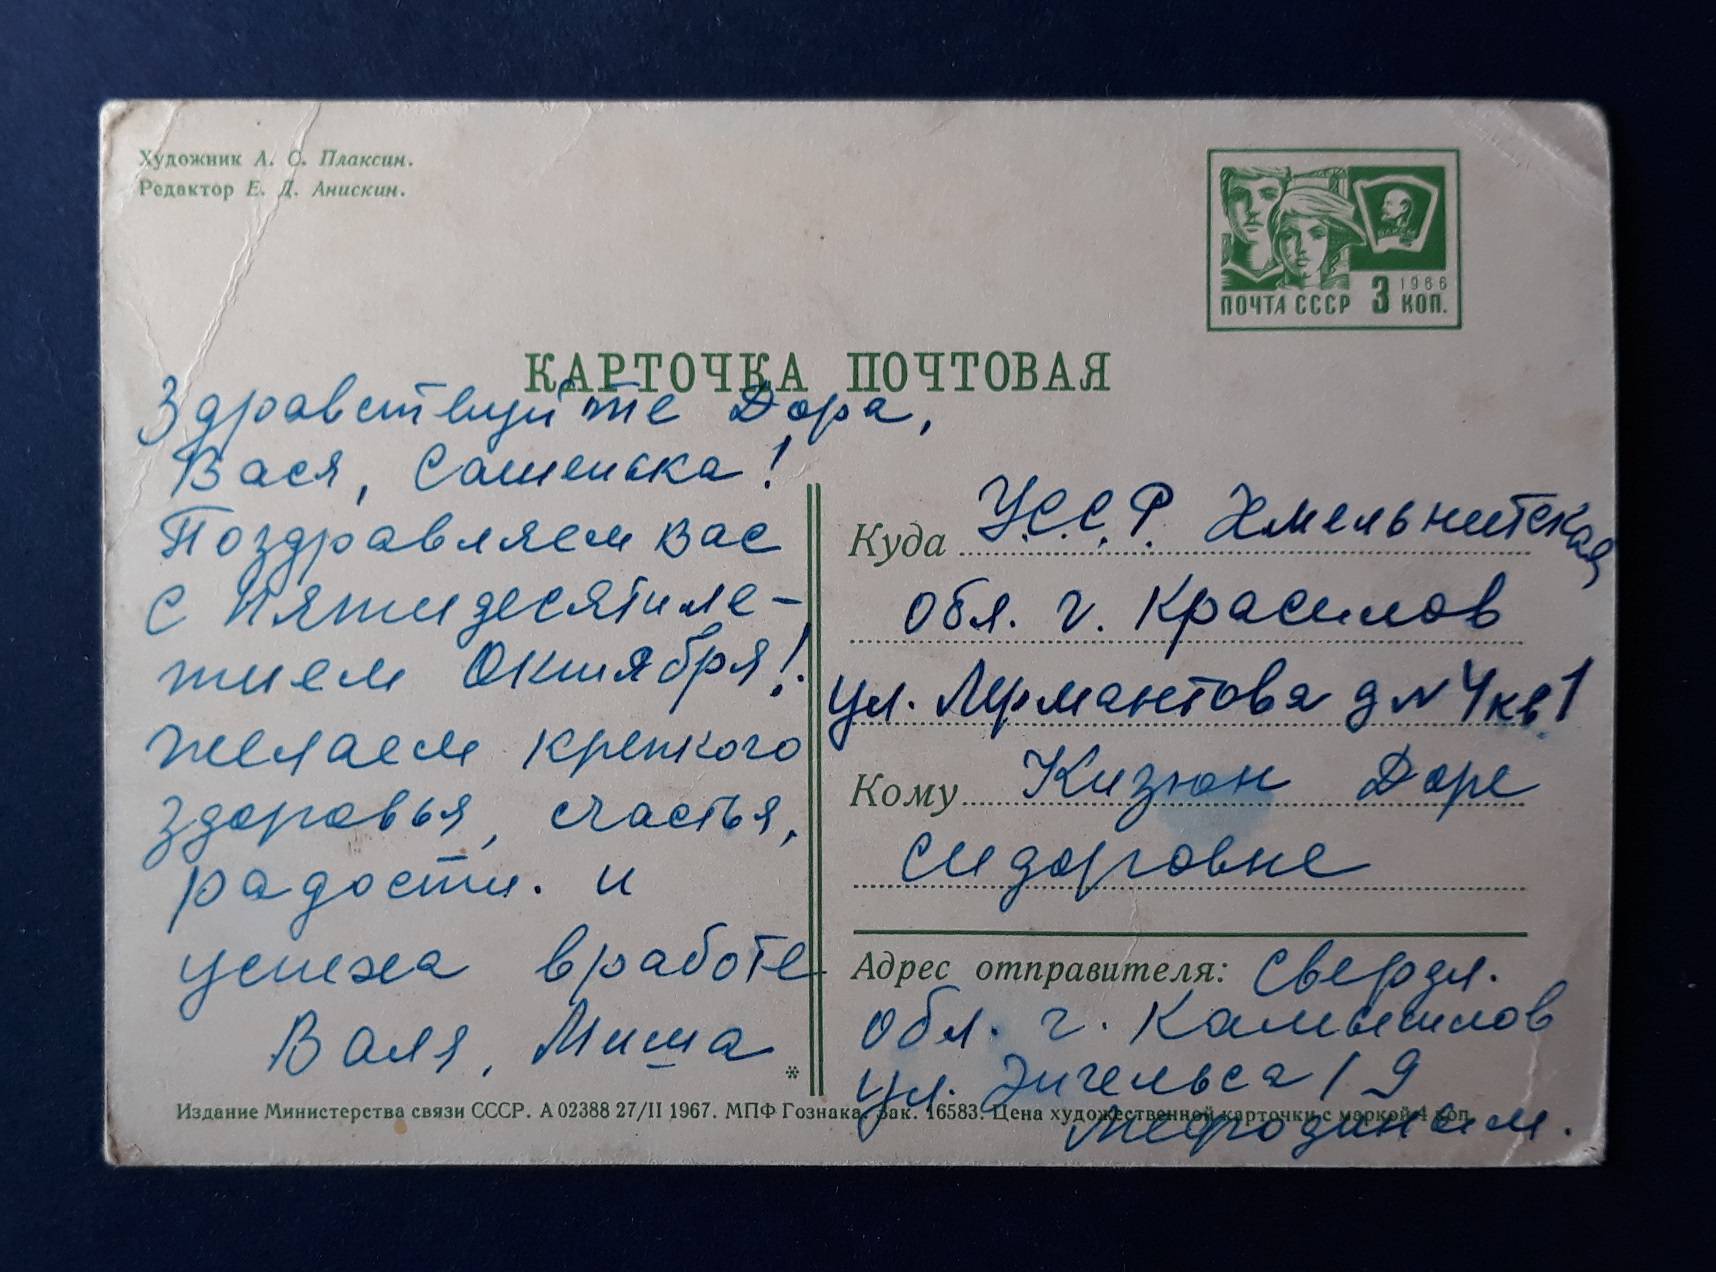 Художник А. С. Плаксин.
Редактор Е. Д. Анискин.
ВЛКСМ
1966
ПОЧТА СССР 3 КОП.
КАРТОЧКА ПОЧТОВАЯ
Здравствуйте Дора,
Вася, Сашенька!
Поздравляем вас
с Пятидесятиле-
тием Октября!
Желаем крепкого
здоровья, счастья,
радости. и
успеха в работе
Валя, Миша
*
Куда У.С.С.Р. Хмельнитская
обл. г. Красилов
ул. Лермантова д N 4 кв 1
Кому Кизюн Доре
Сидоровне
Адрес отправителя: Свердл.
обл. г. Камышлов
ул. Энгельса 19
Издание Министерства связи СССР. А 02388 27/II 1967. МПФ Гознака. Зак. 16583. Цена художественной карточки с маркой 4 коп.